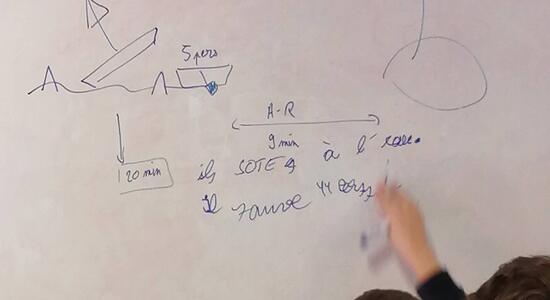 5 pers
A-R
9 min
20 min
ils SOTE à l'eau.
Il sauve 44